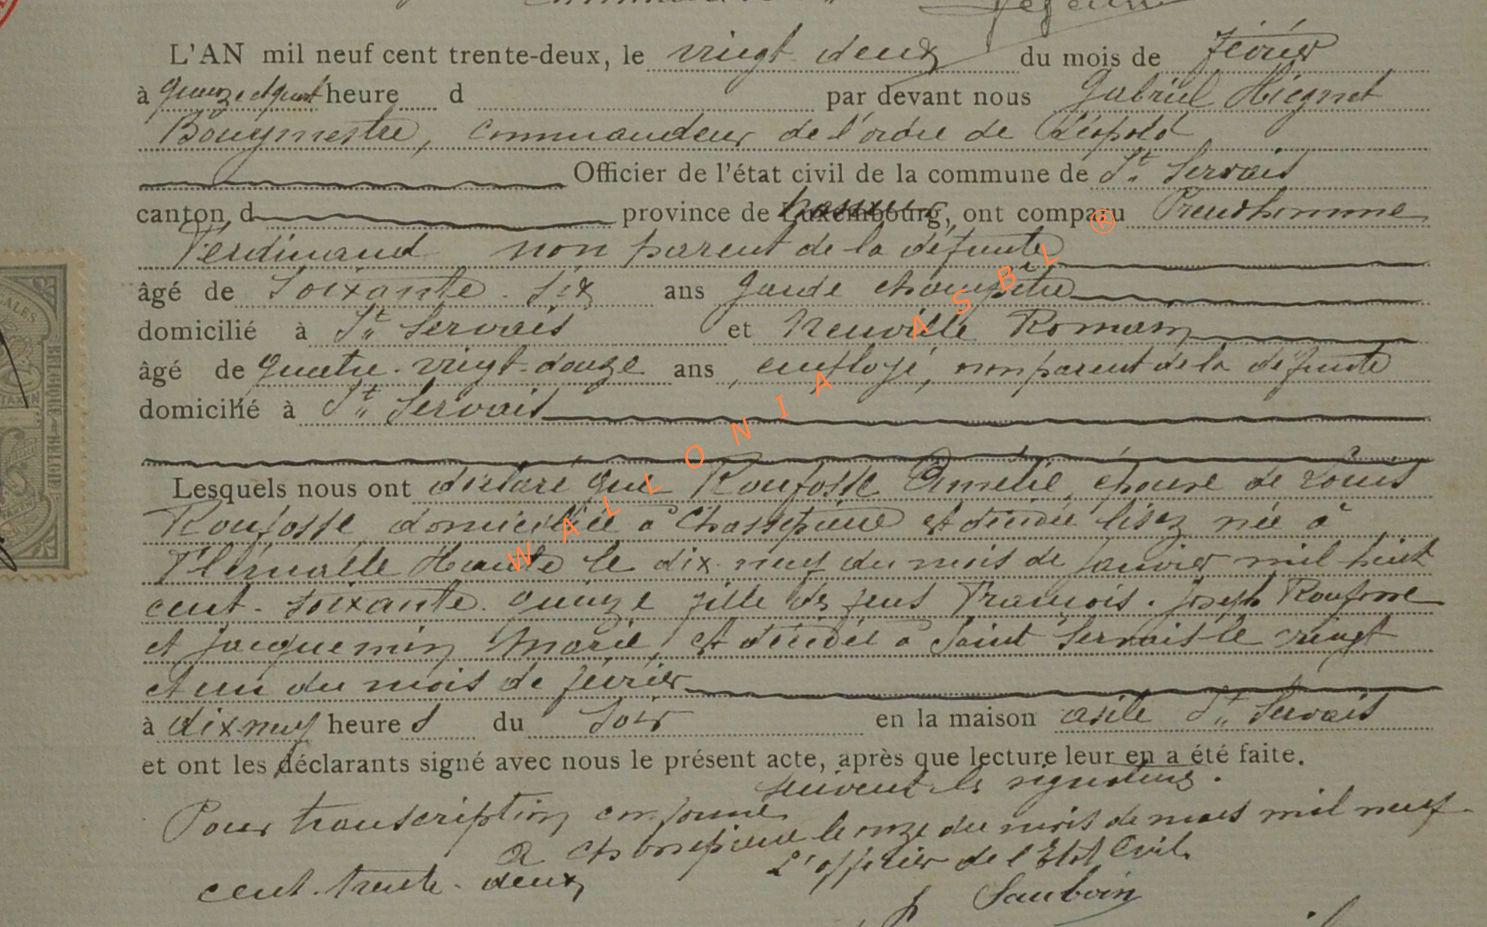 L'AN mil neuf cent trente-deux, le vingt deux du mois de février
à quinze et quart heure d par devant nous Gabriel
Bourgmestre, commandeur de l'ordre de Léopold
Officier de l'état civil de la commune de St Servais
canton d province de Luxembourg, ont comparu Preudhomme
Ferdinand non parent de la défunte
âgé de soixante-six ans garde champêtre
domicilié à St Servais et Neuville Romain
âgé de quatre-vingt-douze ans, employé, non parent de la défunte
domicilié à St Servais
Lesquels nous ont déclaré que Roufosse Amélie, épouse de Louis
Roufosse domiciliée à Chassepierre est décédée lisez née à
Flémalle Haute le dix-neuf du mois de janvier mil huit
cent-soixante-quinze fille des feus François-Joseph Roufosse
et Jacquemin Marie, est décédée à Saint Servais le vingt
et un du mois de février
à dix neuf heures du soir en la maison asile St Servais
et ont les déclarants signé avec nous le présent acte, après que lecture leur en a été faite.
suivent les signatures.
Pour transcription conforme
à Chassepierre le onze du mois de mars mil neuf-
cent-trente-deux
L'officier de l'Etat Civil,
Sauboin
WALLONIA ASBL ®
BELGIQUE-BELGIE